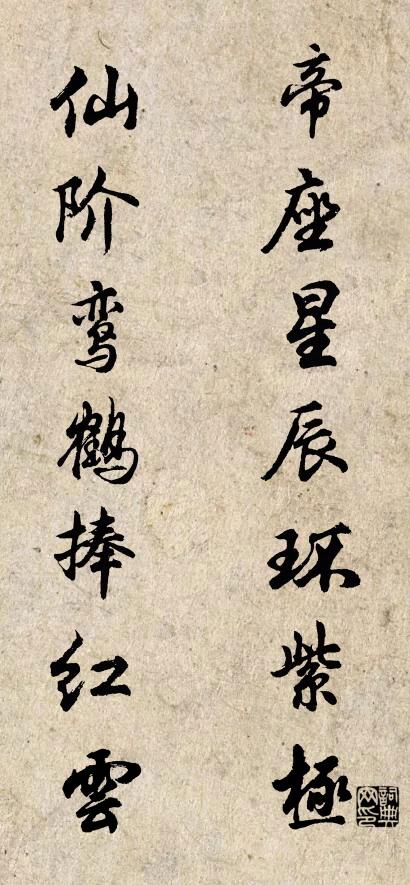 帝座星辰环紫極
仙阶鸾鹤捧红雲
詞典网印